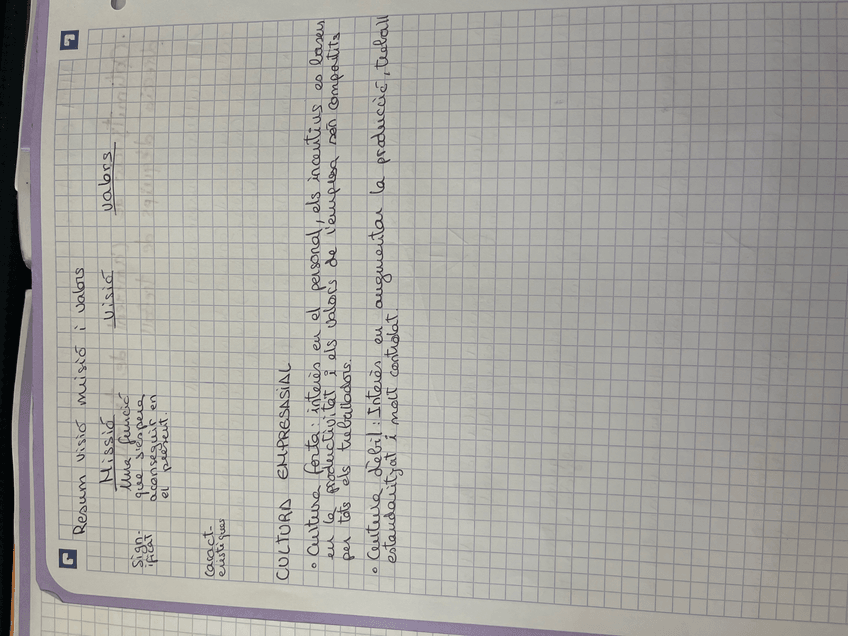 Resum visió missió i valors
Missió Visió Valors
Sign-
ificat
Una funció
que s'espera
aconseguir en
el present.
Caract-
erístiques
CULTURA EMPRESASIAL
• Cultura forta: interès en el personal, els incentius es basen
en la productivitat i els valors de l'empresa són compartits
per tots els treballadors.
• Cultura dèbil: Interès en augmentar la producció, treball
estandaritzat i molt controlat.